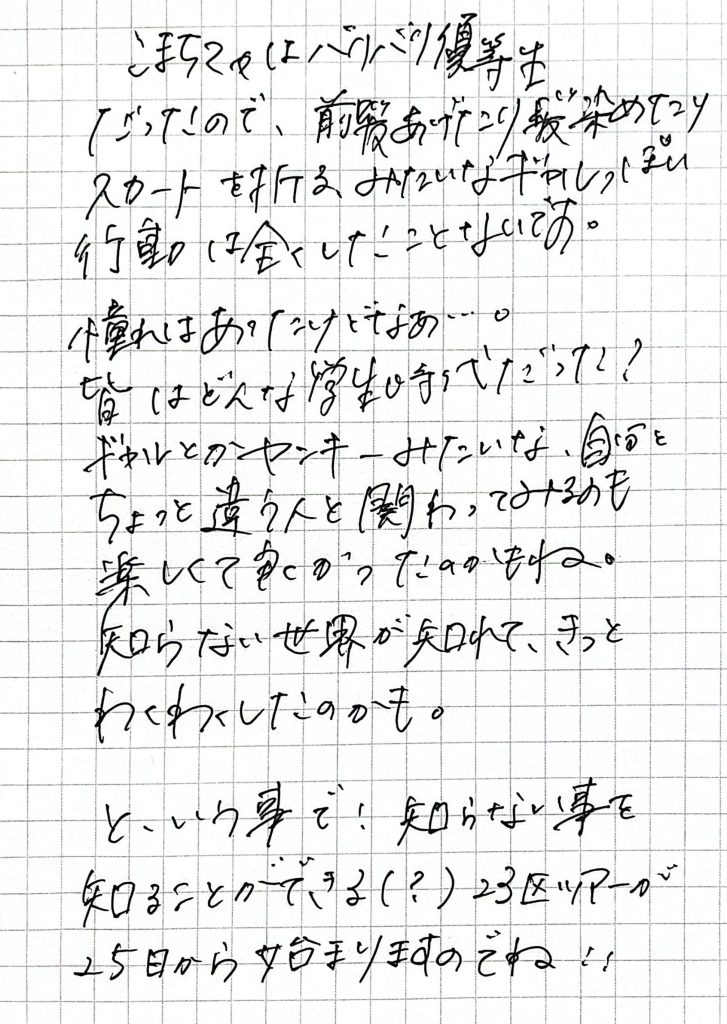 こまちゃはバリバリ優等生
だったので、前髪あげたり髪染めたり
スカートを折る、みたいなギャルっぽい
行動は全くしたことないです。
憧れはあったけどなぁ…。
皆はどんな学生時代だった?
ギャルとかヤンキーみたいな、自分と
ちょっと違う人と関わってみるのも
楽しくて
知らない世界が知れて、きっと
わくわくしたのかも。
と、いう事で!知らない事を
知ることができる(?)23区ツアーが
25日から始まりますのでね!!